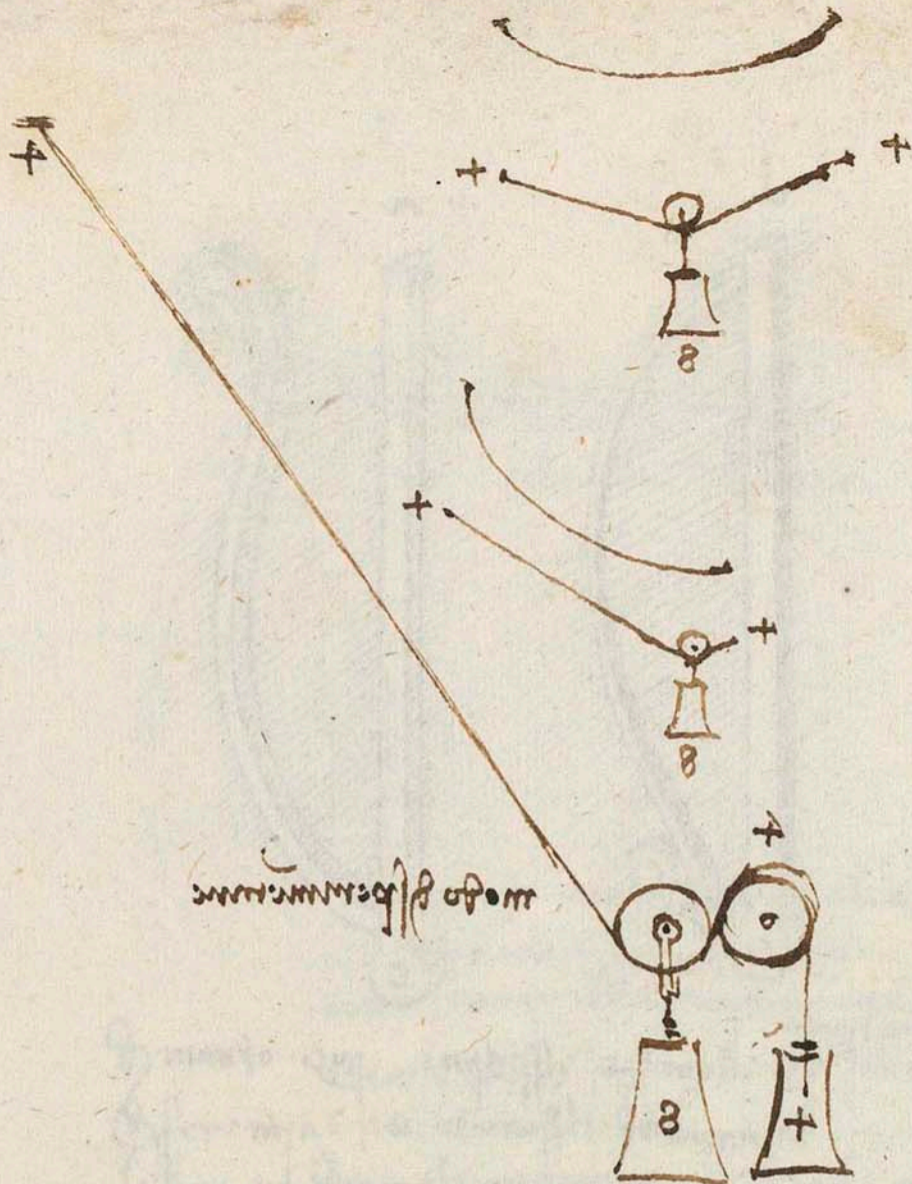 4
4 4
8
4
4
8
4
modo di sperimentare
8 4